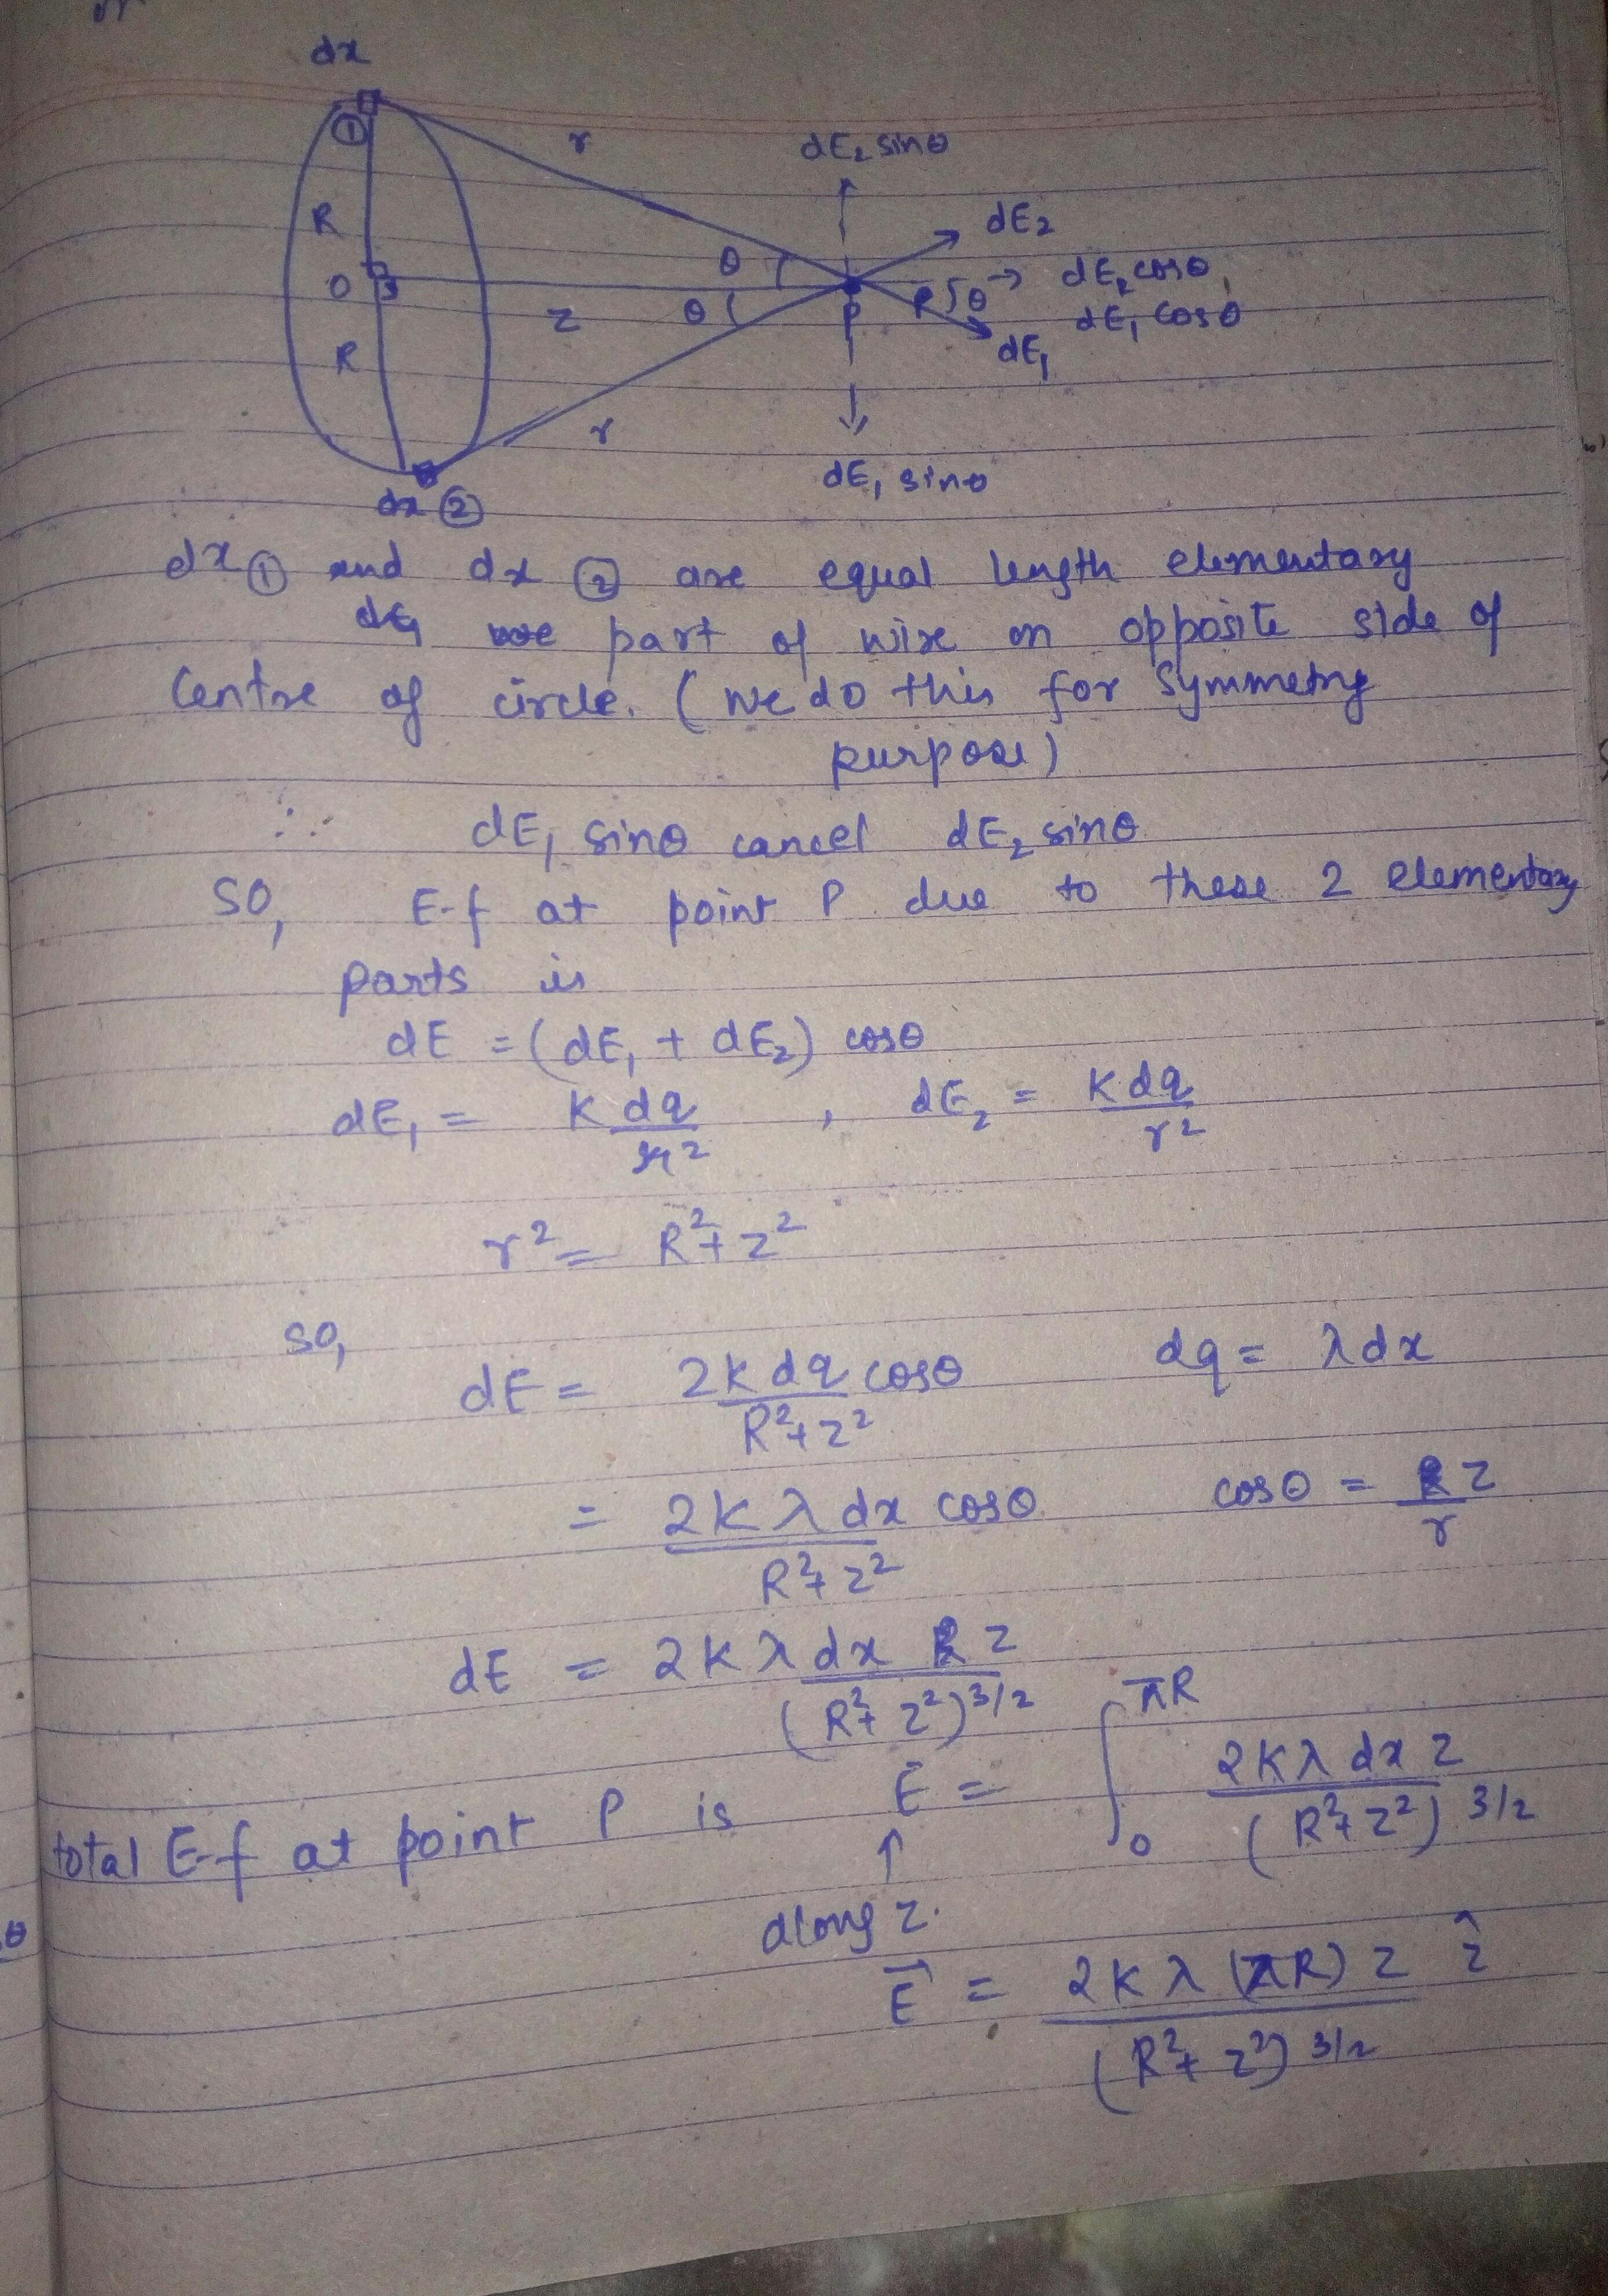 dx
①
r
dE₂ sinθ
R
dE₂
θ
O
θ
z
P
θ
dE₂ cosθ,
dE₁ cosθ
R
dE₁
r
dE₁ sinθ
dx ②
dx ① and dx ② are equal length elementary
part of wire on opposite side of
Centre of circle. (we do this for symmetry
purpose)
∴ dE₁ sinθ cancel dE₂ sinθ
So, E-f at point P due to these 2 elementary
parts is
dE = (dE₁ + dE₂) cosθ
dE₁ = K dq / r² , dE₂ = K dq / r²
r² = R² + z²
so,
dE = 2K dq cosθ / R² + z² dq = λ dx
= 2K λ dx cosθ / R² + z² cosθ = z / r
dE = 2K λ dx z / (R² + z²)^3/2
total E-f at point P is E = ∫₀^πR 2Kλ dx z / (R² + z²)^3/2
↑
along z.
E⃗ = 2K λ (πR) z ẑ / (R² + z²)^3/2